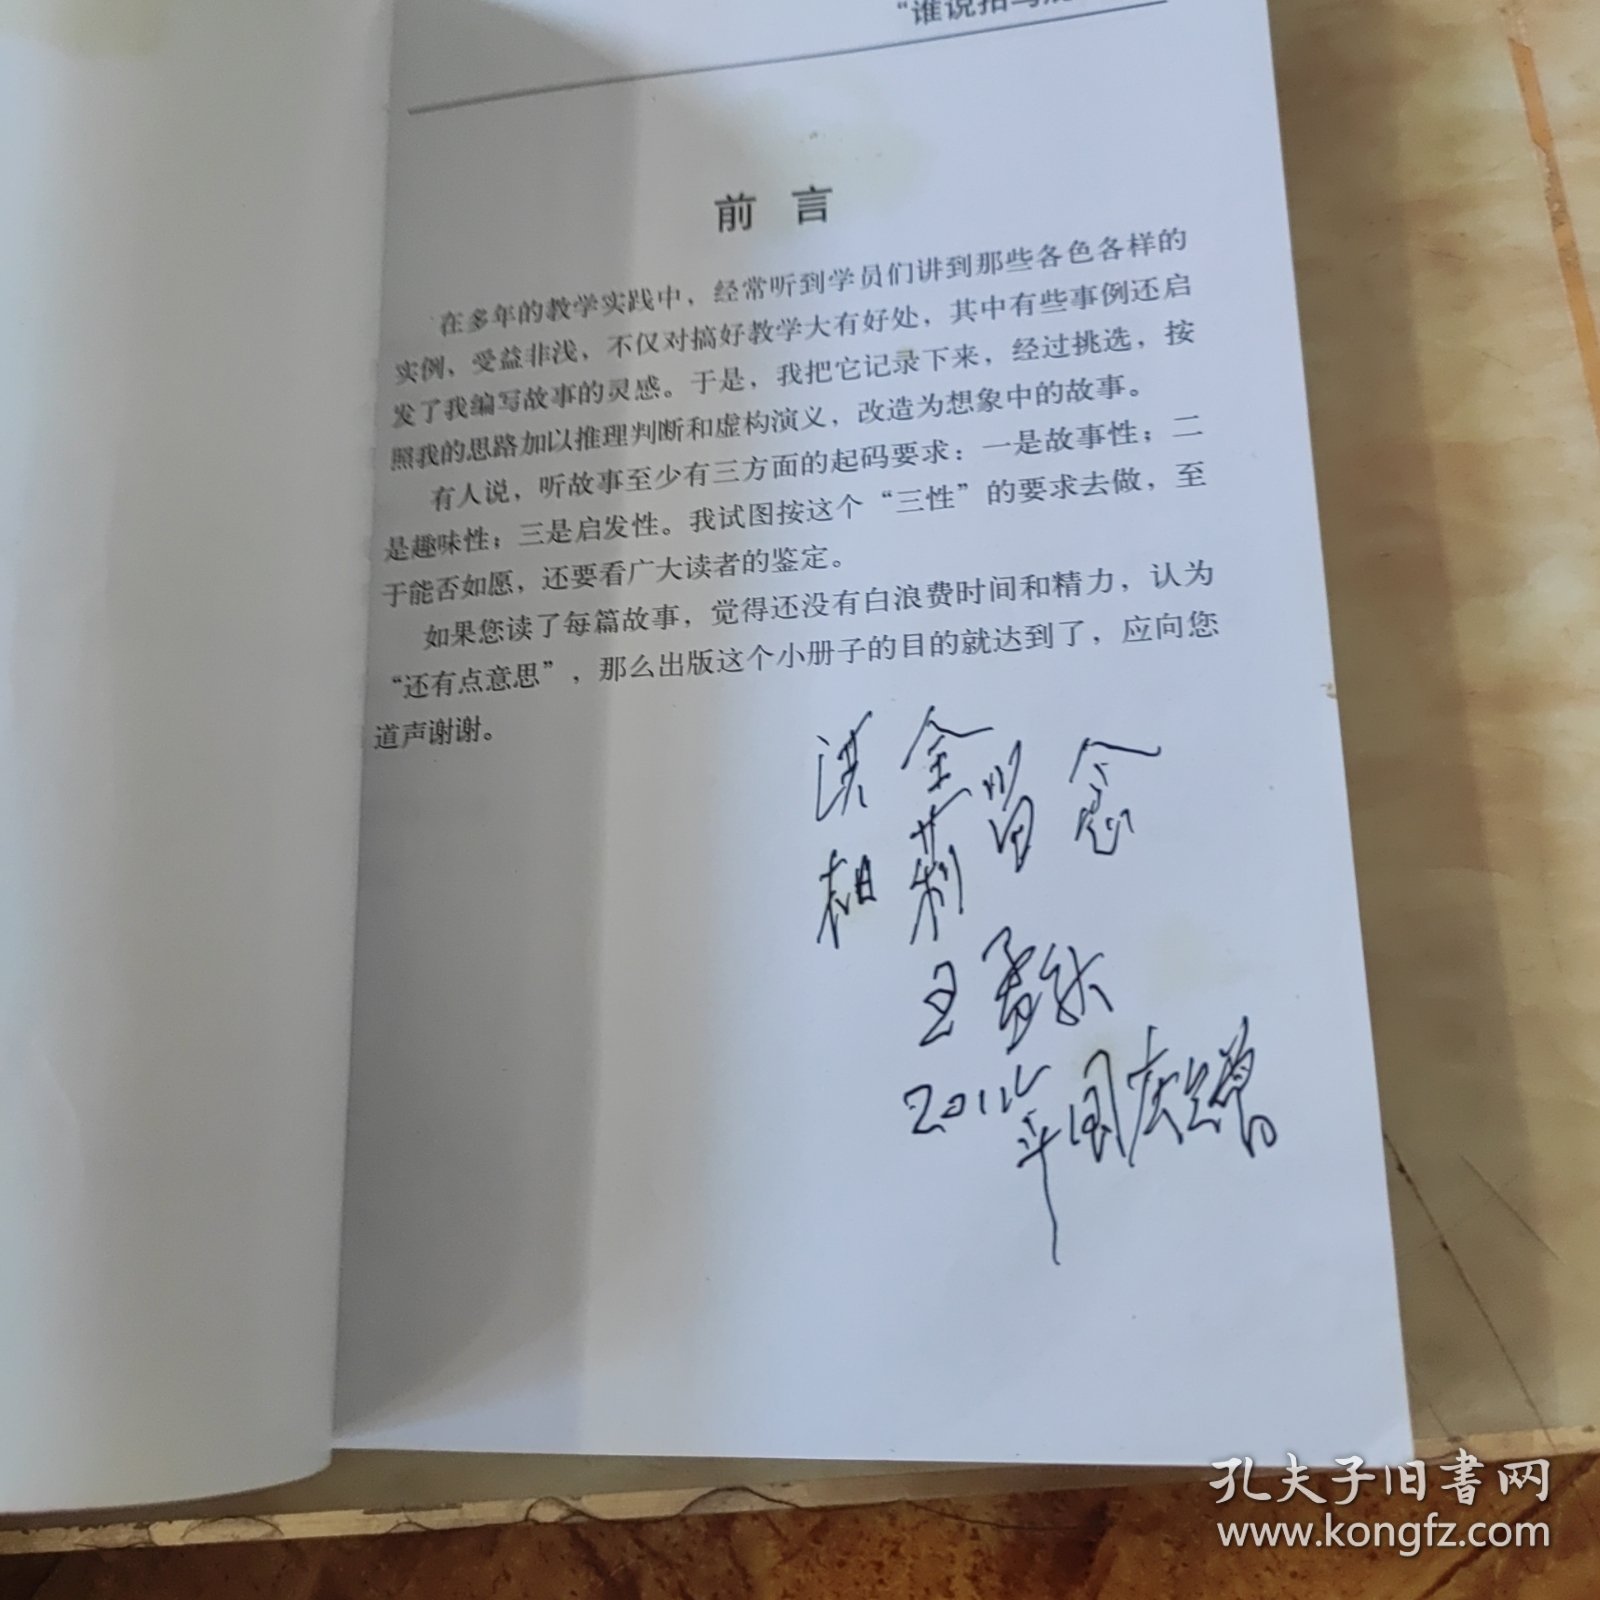 “谁说拍马
前 言
在多年的教学实践中，经常听到学员们讲到那些各色各样的
实例，受益非浅，不仅对搞好教学大有好处，其中有些事例还启
发了我编写故事的灵感。于是，我把它记录下来，经过挑选，按
照我的思路加以推理判断和虚构演义，改造为想象中的故事。
有人说，听故事至少有三方面的起码要求：一是故事性；二
是趣味性；三是启发性。我试图按这个“三性”的要求去做，至
于能否如愿，还要看广大读者的鉴定。
如果您读了每篇故事，觉得还没有白浪费时间和精力，认为
“还有点意思”，那么出版这个小册子的目的就达到了，应向您
道声谢谢。
洪全
相莉 留念
王孟秋
年国庆
孔夫子旧书网
www.kongfz.com